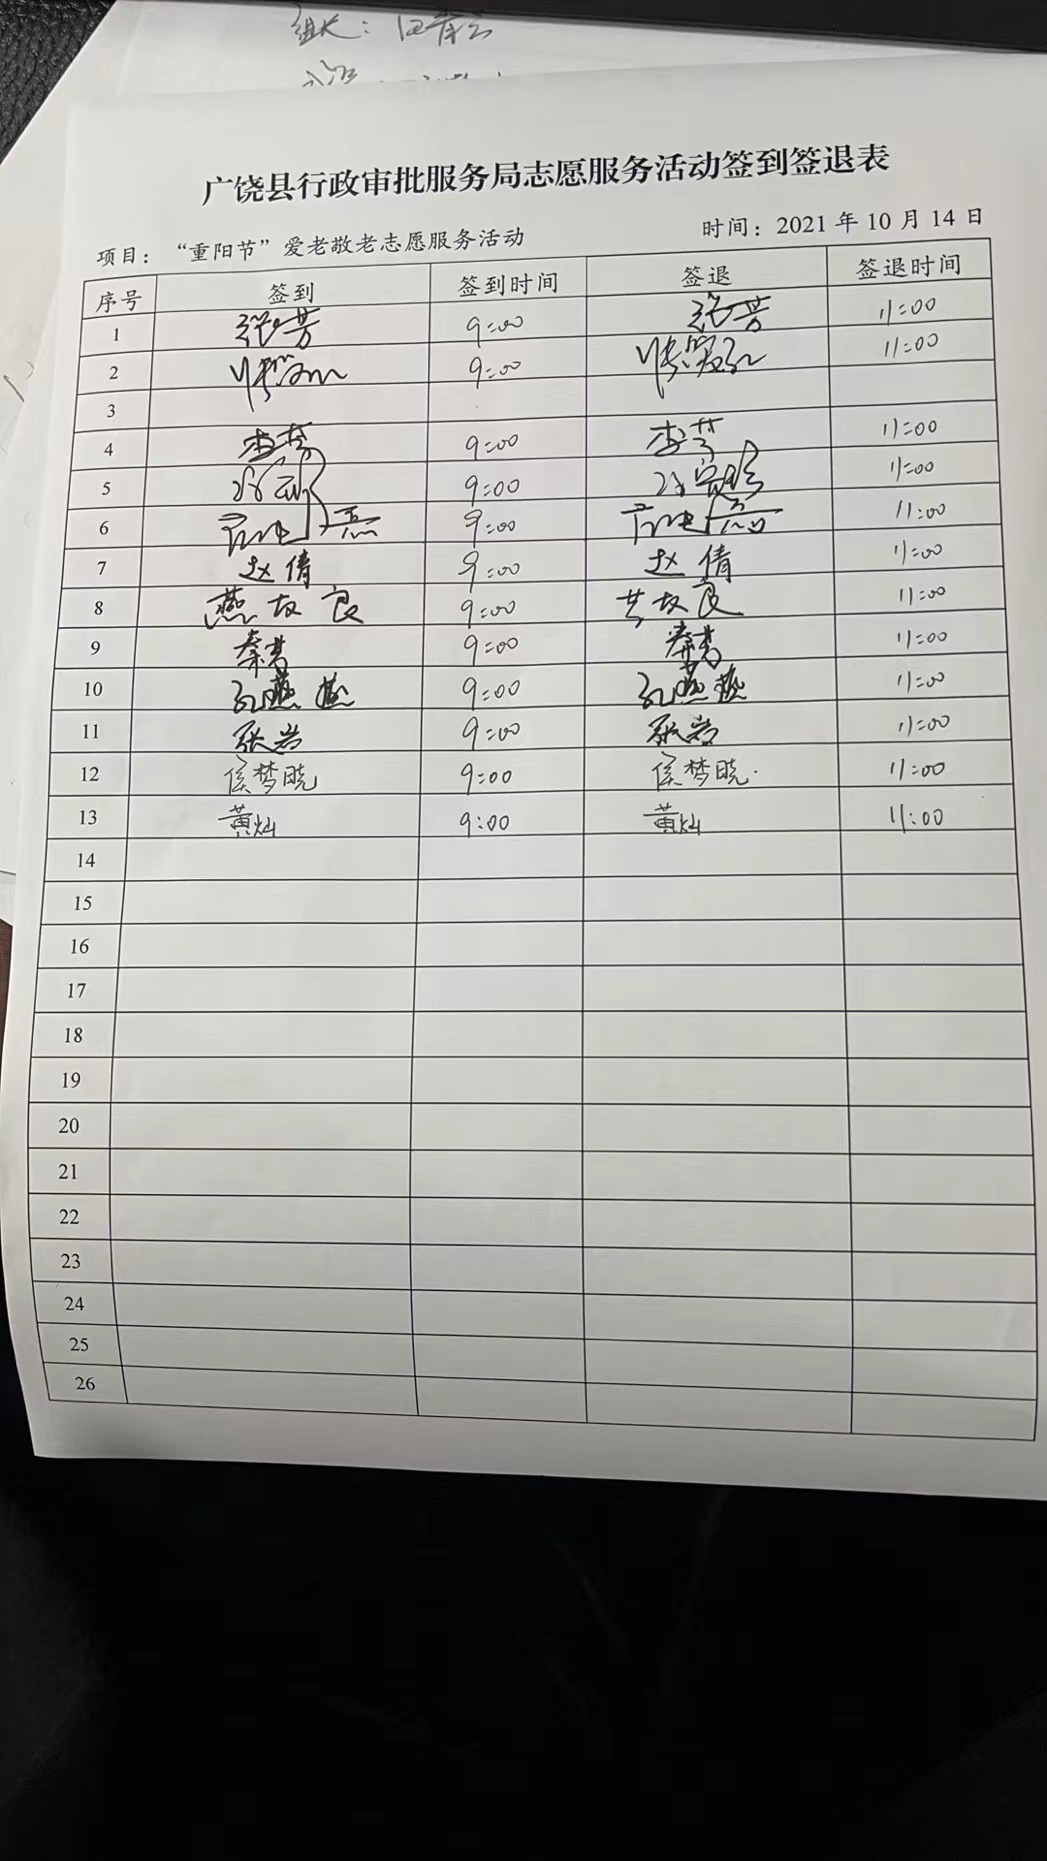 组长：
广饶县行政审批服务局志愿服务活动签到签退表
项目：“重阳节”爱老敬老志愿服务活动 时间：2021 年 10 月 14 日
序号 签到 签到时间 签退 签退时间
1 张芳 9:00 张芳 11:00
2 9:00 11:00
3
4 李芳 9:00 李芳 11:00
5 9:00 11:00
6 9:00 11:00
7 赵倩 9:00 赵倩 11:00
8 燕友良 9:00 11:00
9 秦梦 9:00 秦梦 11:00
10 孔燕燕 9:00 孔燕燕 11:00
11 张岩 9:00 张岩 11:00
12 侯梦晓 9:00 侯梦晓 11:00
13 黄灿 9:00 黄灿 11:00
14
15
16
17
18
19
20
21
22
23
24
25
26